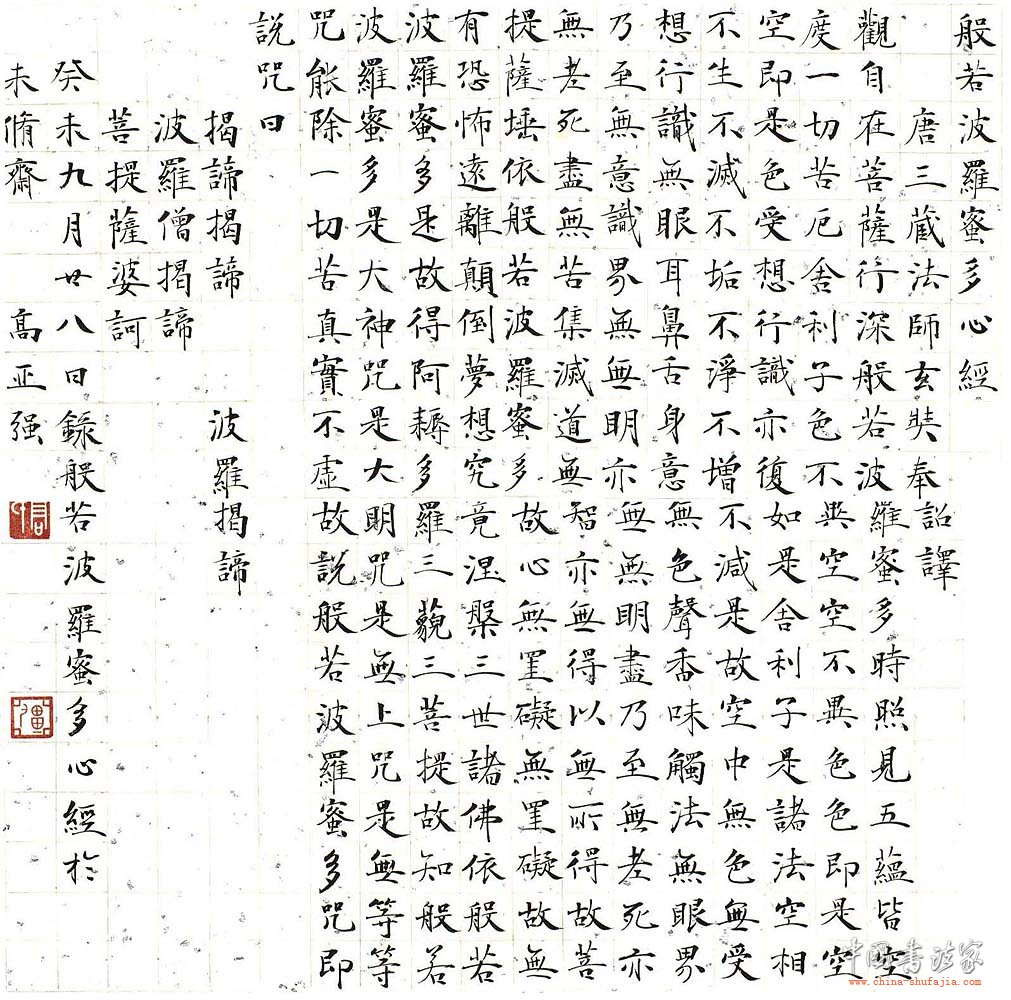 般若波羅蜜多心經
唐三蔵法師玄奘奉詔譯
觀自在菩薩行深般若波羅蜜多時照見五蘊皆空
度一切苦厄舍利子色不異空空不異色色即是空
空即是色受想行識亦復如是舍利子是諸法空相
不生不滅不垢不淨不增不減是故空中無色無受
想行識無眼耳鼻舌身意無色聲香味觸法無眼界
乃至無意識界無無明亦無無明盡乃至無老死亦
無老死盡無苦集滅道無智亦無得以無所得故菩
提薩埵依般若波羅蜜多故心無罣礙無罣礙故無
有恐怖遠離顛倒夢想究竟涅槃三世諸佛依般若
波羅蜜多是故得阿耨多羅三藐三菩提故知般若
波羅蜜多是大神咒是大明咒是無上咒是無等等
咒能除一切苦真實不虛故說般若波羅蜜多咒即
說咒曰
揭諦揭諦 波羅揭諦
波羅僧揭諦
菩提薩婆訶
癸未九月廿八日錄般若波羅蜜多心經於
未脩齋 高正强
中国书法家
www.china-shufajia.com